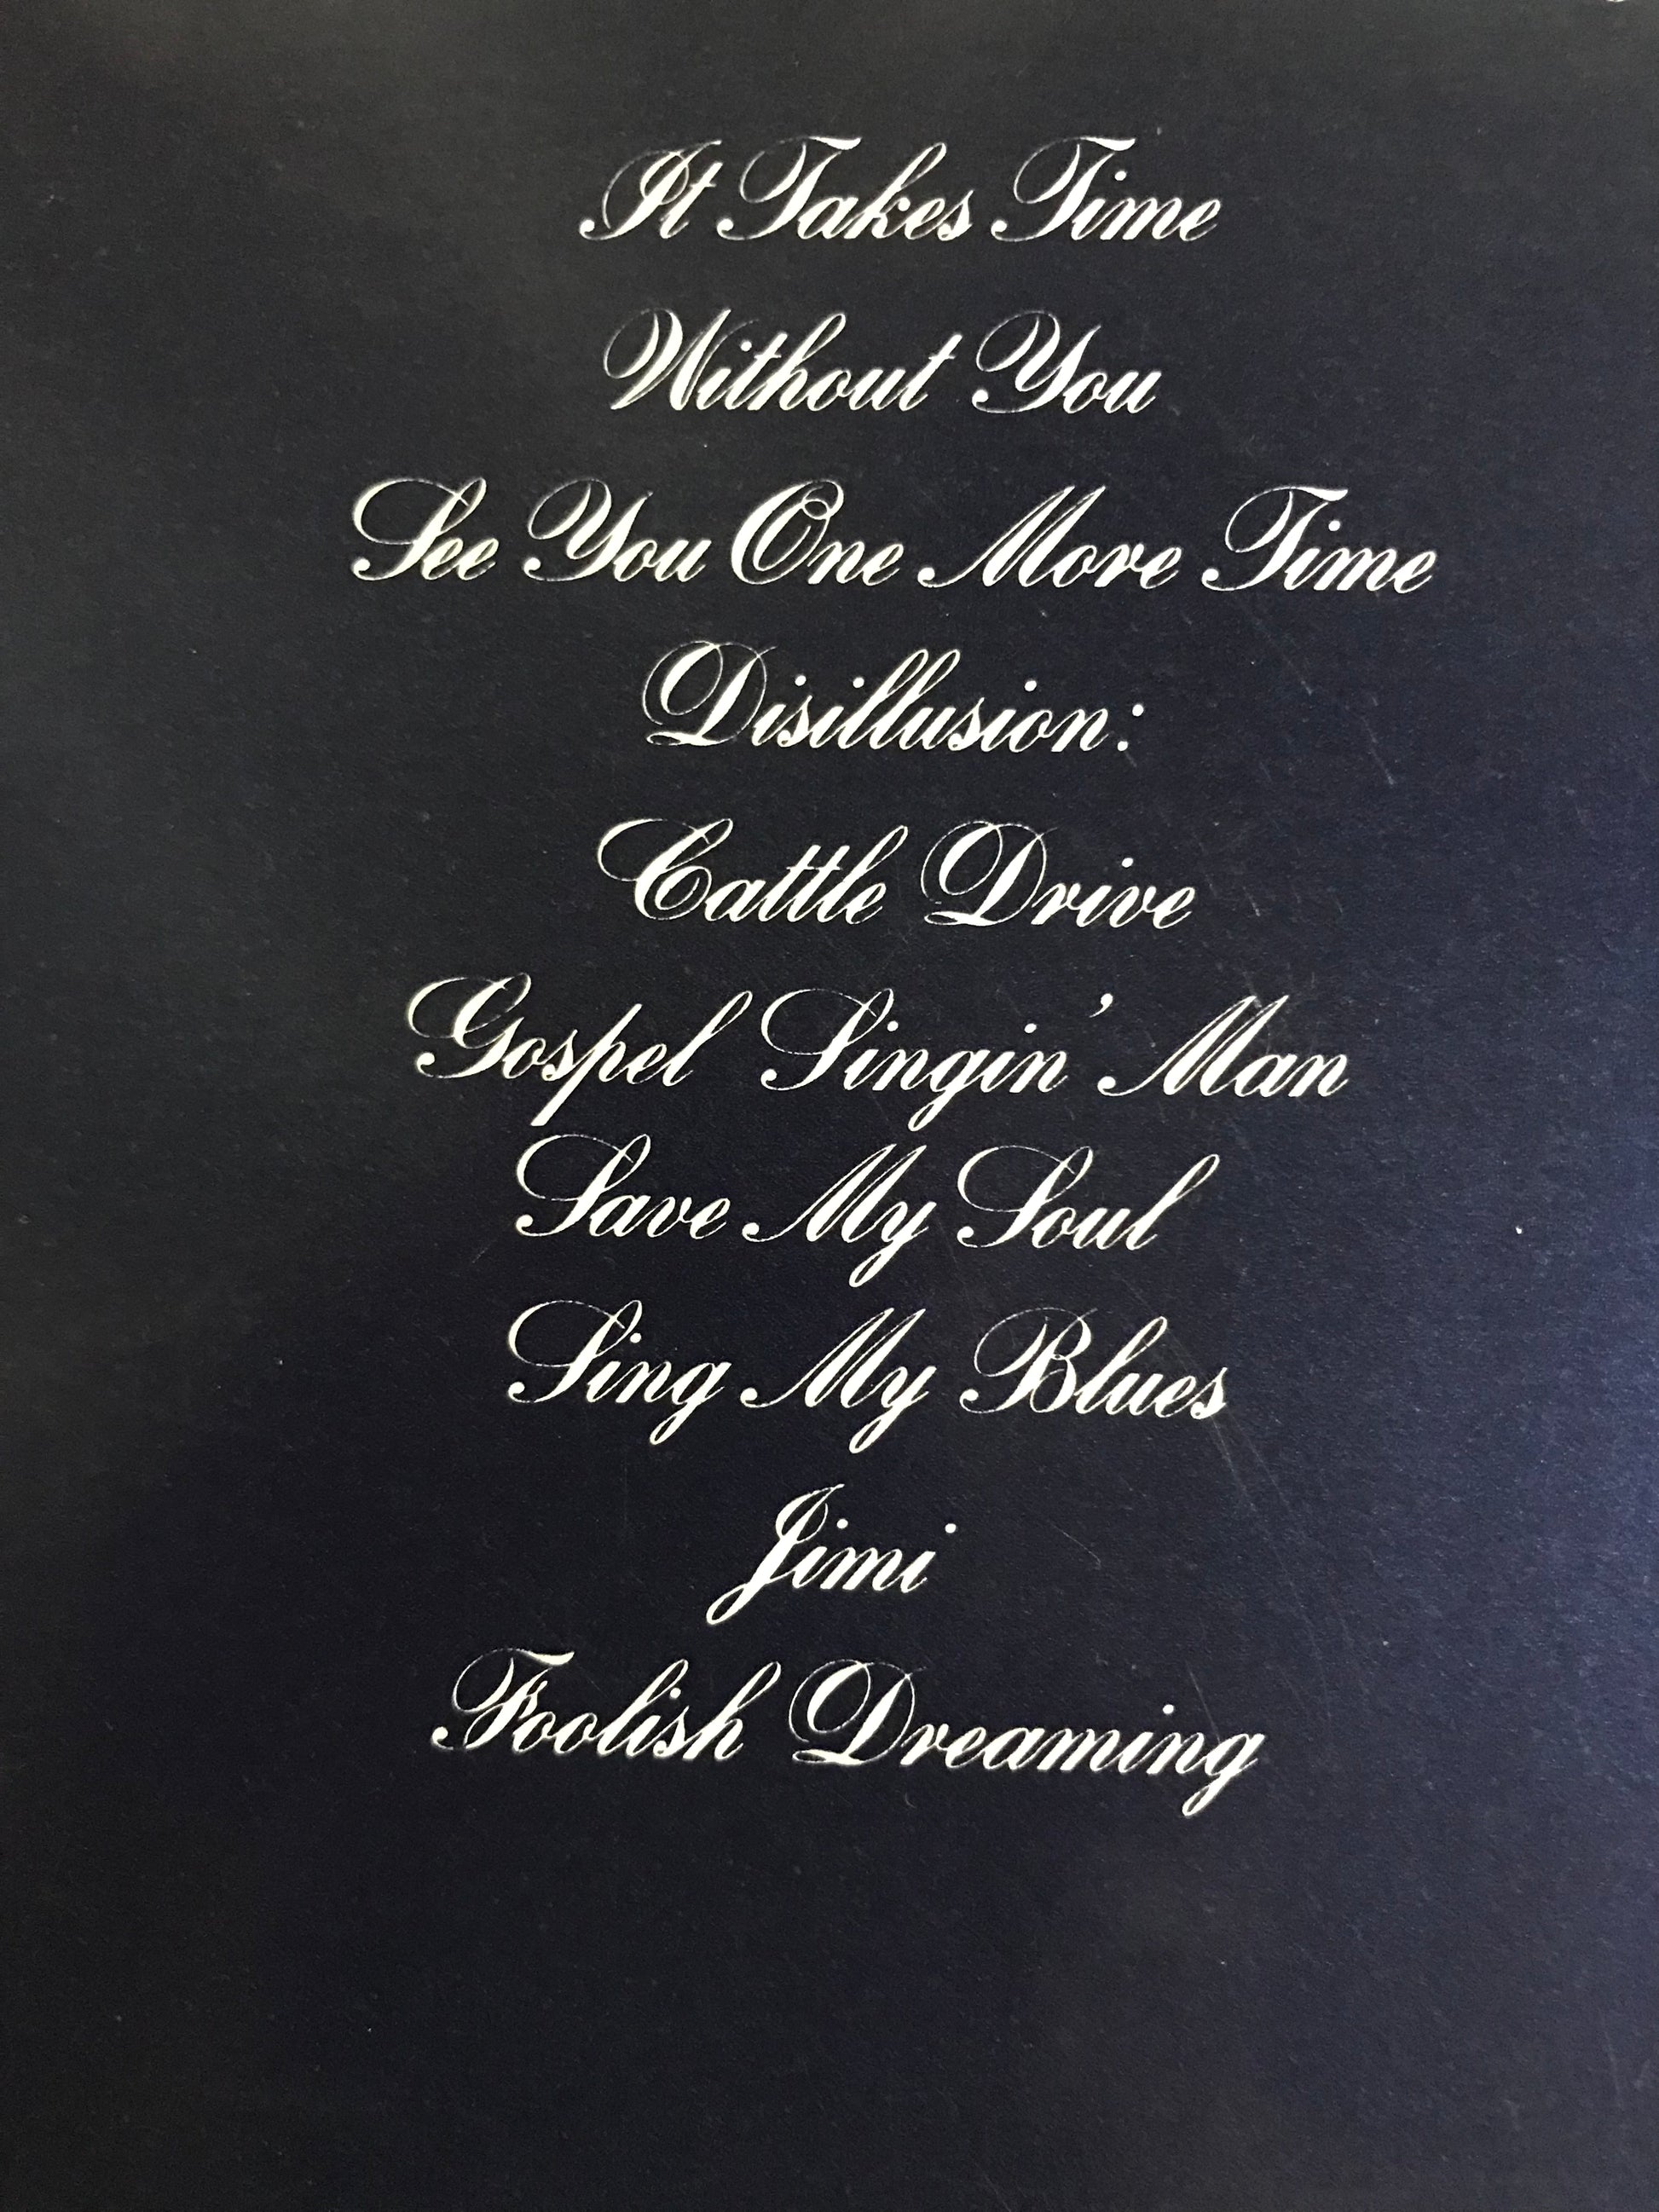 It Takes Time
Without You
See You One More Time
Disillusion:
Cattle Drive
Gospel Singin' Man
Save My Soul
Sing My Blues
Jimi
Foolish Dreaming